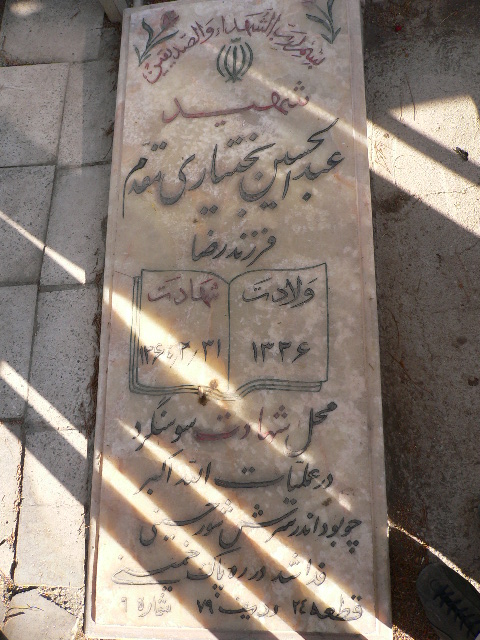 بسم رب الشهداء والصدیقین
شهید
عبدالحسین بختیاری مقدم
فرزند رضا
ولادت شهادت
۱۳۲۶ ۱۳۶۰/۲/۳۱
محل شهادت سوسنگرد
در عملیات الله اکبر
چو بود اندر سرش شور حسینی
فدا شد در ره پاک خمینی
قطعه ۲۴ ردیف ۷۹ شماره ۶